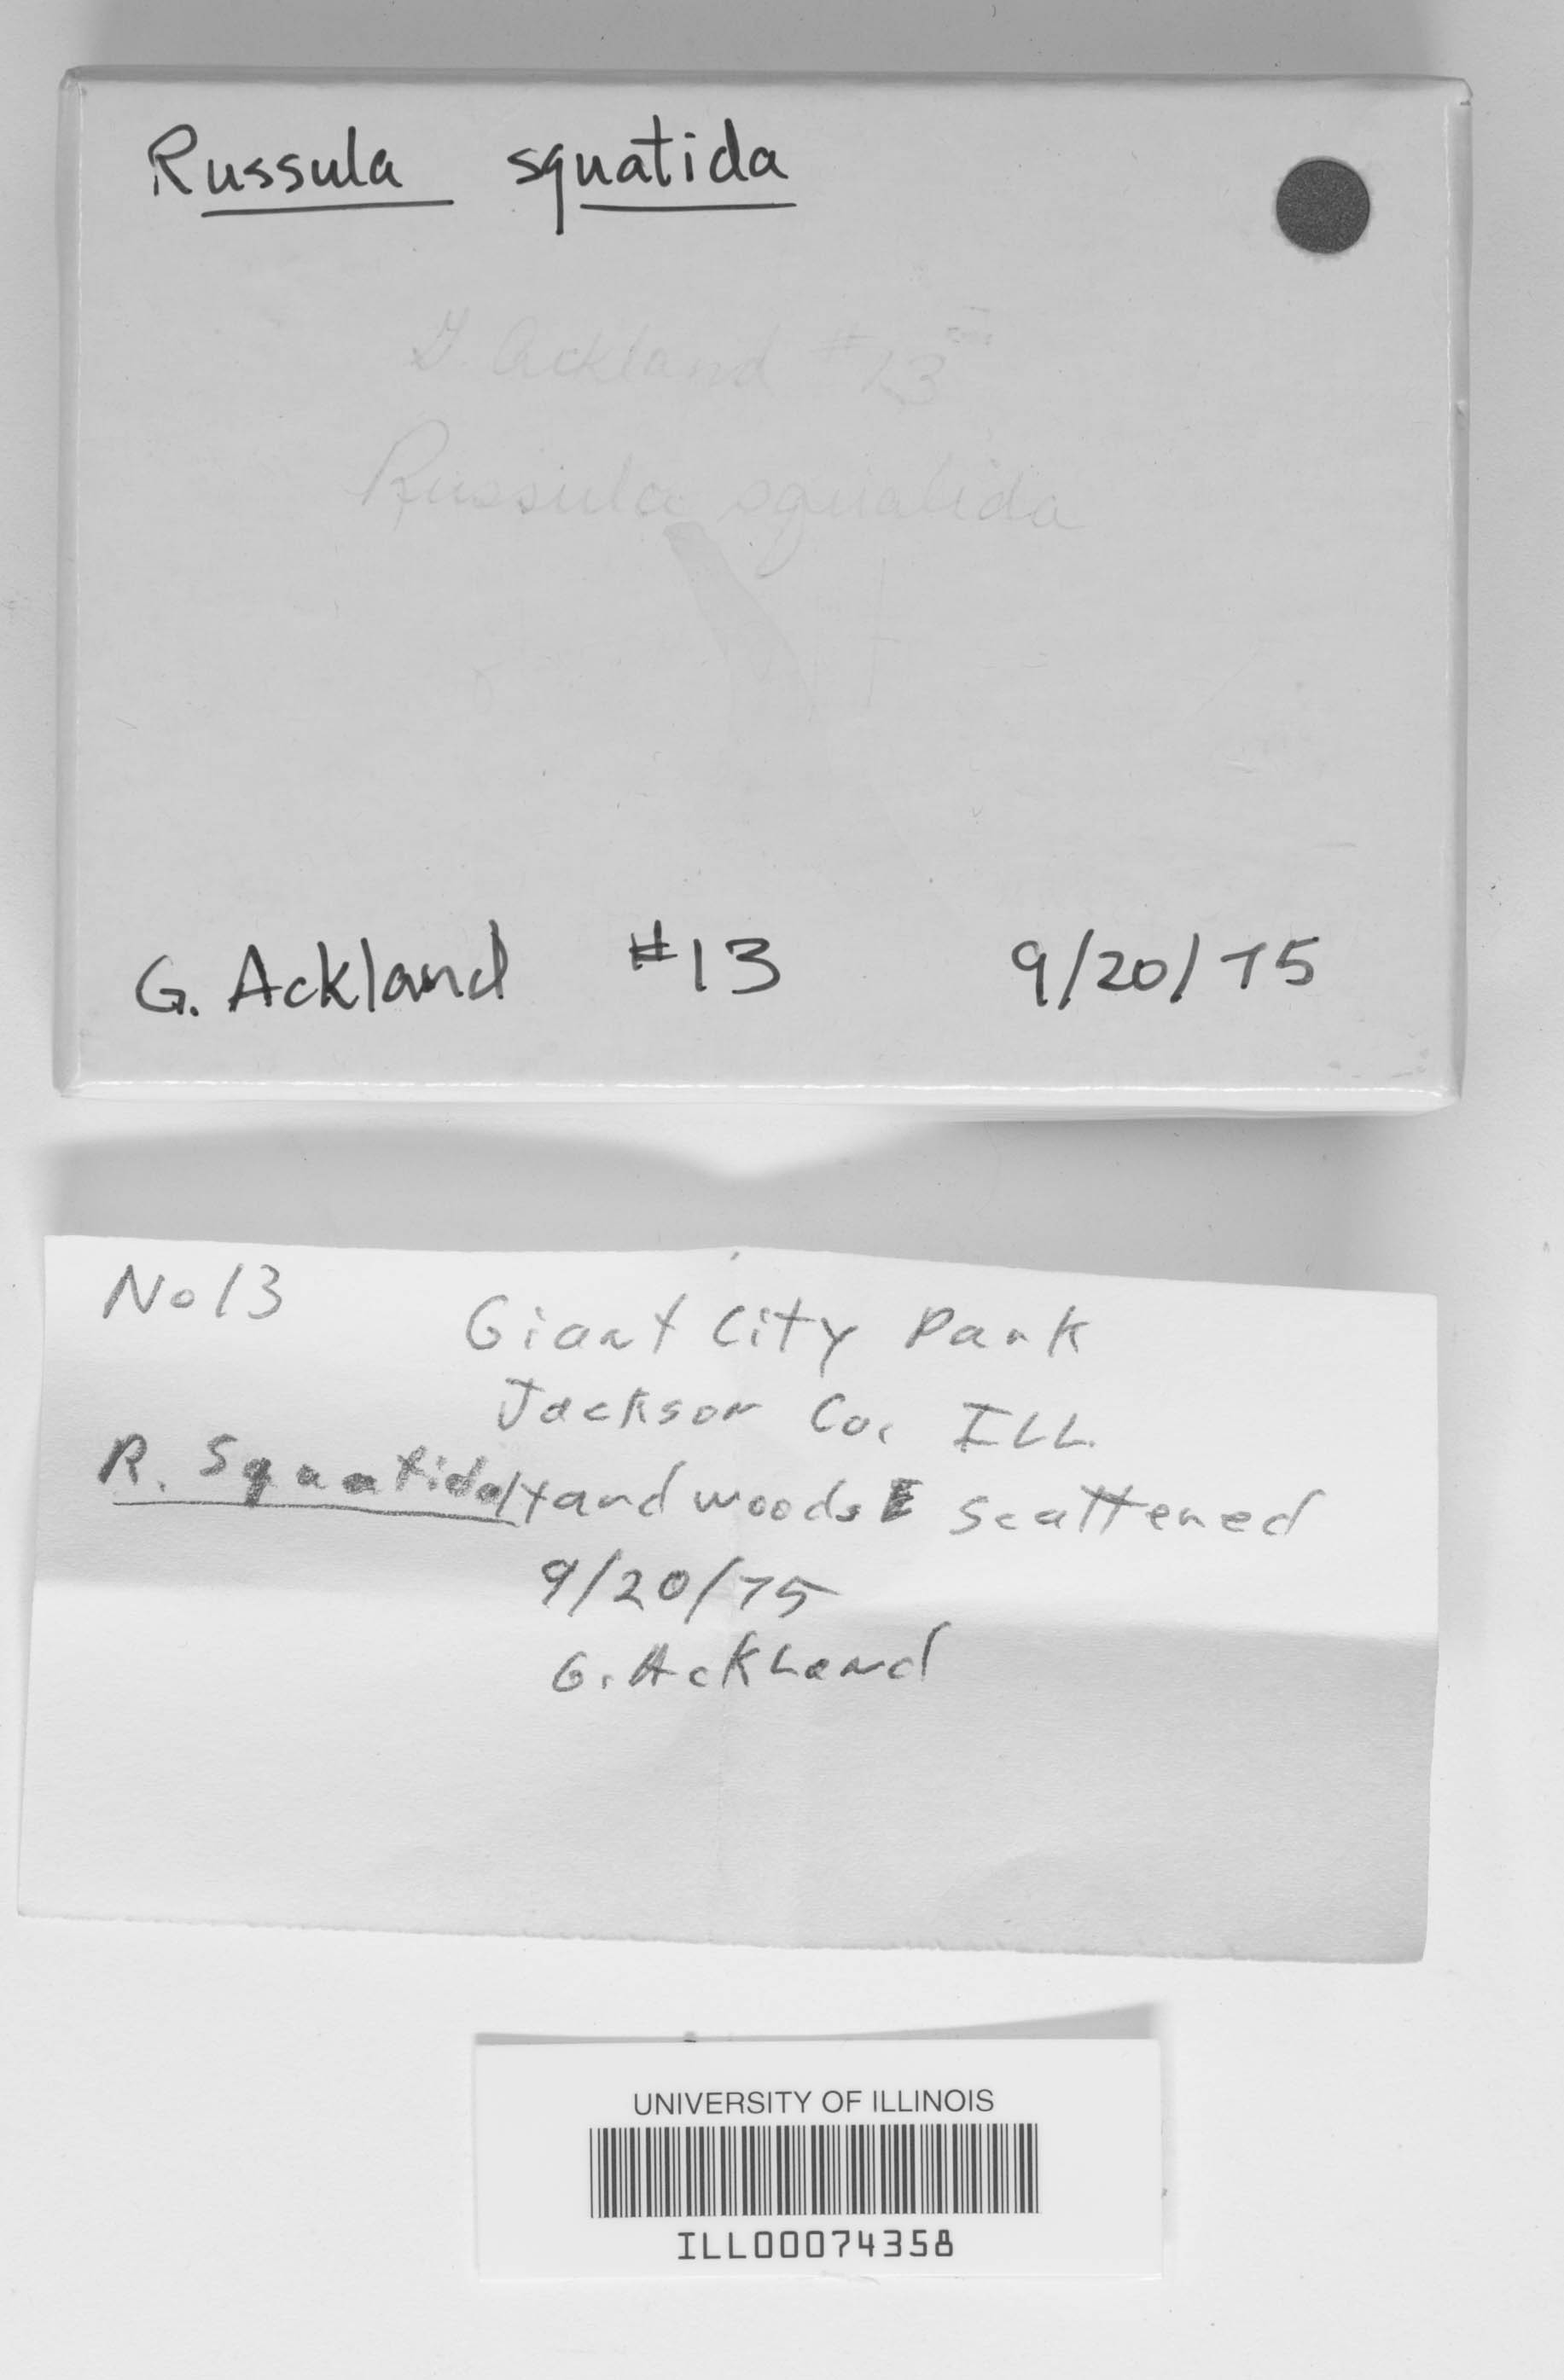 Russula squatida
G. Ackland #13
Russula squatida
G. Ackland #13 9/20/75
No 13
Giant City Park
Jackson Co. ILL.
R. Squatida Hardwoods E Scattered
9/20/75
G. Ackland
UNIVERSITY OF ILLINOIS
ILL00074358